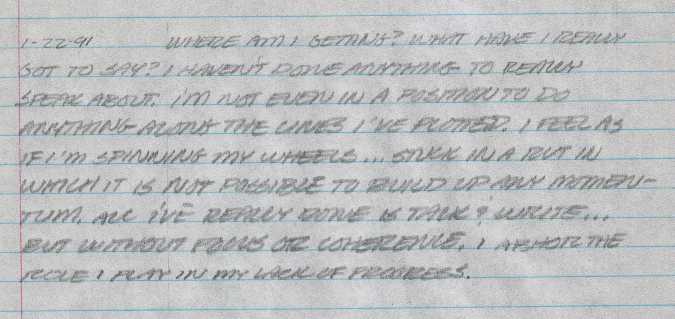 1-22-91 WHERE AM I GETTING? WHAT HAVE I REALLY
GOT TO SAY? I HAVEN'T DONE ANYTHING TO REALLY
SPEAK ABOUT. I'M NOT EVEN IN A POSITION TO DO
ANYTHING ALONG THE LINES I'VE PLOTTED. I FEEL AS
IF I'M SPINNING MY WHEELS... STUCK IN A RUT IN
WHICH IT IS NOT POSSIBLE TO BUILD UP ANY MOMEN-
TUM. ALL I'VE REALLY DONE IS TALK & WRITE...
BUT WITHOUT FOCUS OR COHERENCE. I ABHOR THE
ROLE I PLAY IN MY LACK OF PROGRESS.